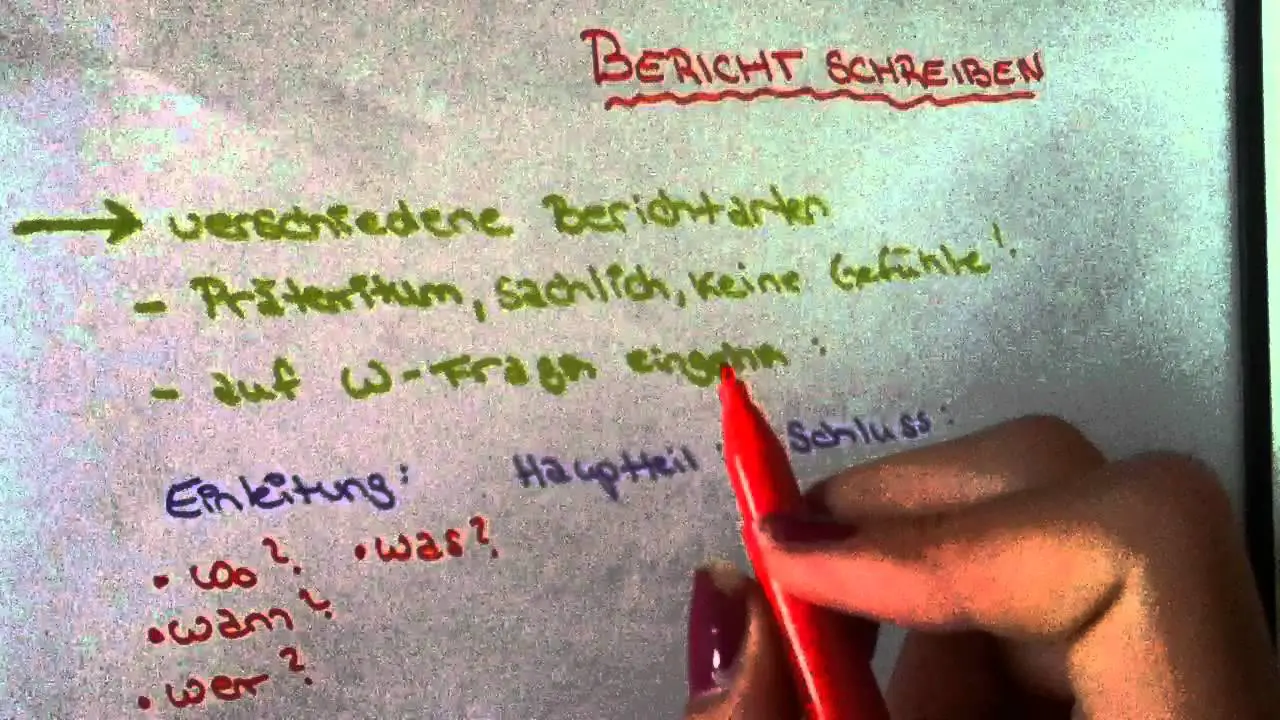 BERICHT SCHREIBEN
→ verschiedene Berichtarten
- Präteritum, sachlich, keine Gefühle!
- auf W-Fragn eingehn:
Einleitung: Hauptteil: Schluss:
• wo? • was?
• wann?
• wer?